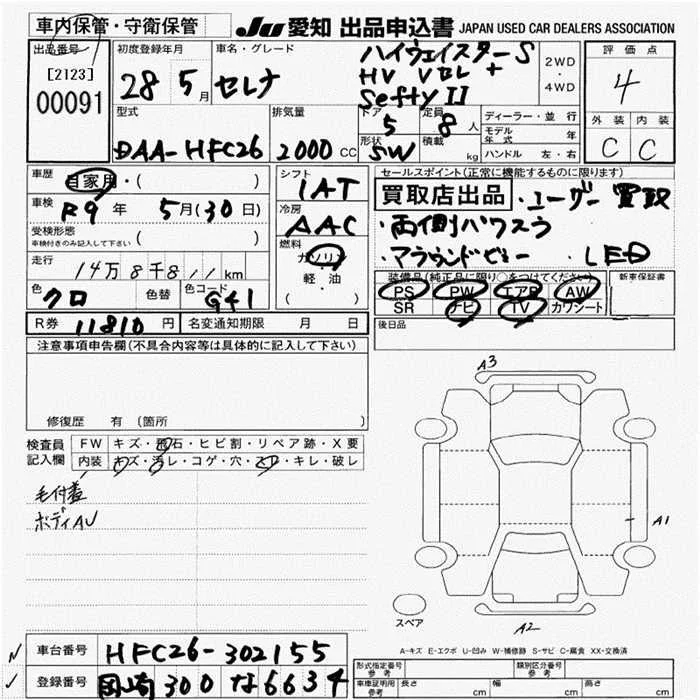 車内保管・守衛保管
JU 愛知 出品申込書 JAPAN USED CAR DEALERS ASSOCIATION
出品番号
[2123]
00091
初度登録年月
28 5月
車名・グレード
セレナ
ハイウェイスターS
HV Vセレ +
Sefty II
2WD
・
4WD
評価点
4
外装 内装
C C
型式
DAA-HFC26
排気量
2000 CC
ドア
5
形状
SW
定員
8 人
積載
kg
ディーラー・並行
モデル年式 年
ハンドル 左・右
車歴
自家用・( )
車検
R9 年 5月(30日)
受検形態
車検付きのみ記入して下さい ( )
走行
14万8千8 11 km
色
クロ
色替
色コード
G41
シフト
1AT
冷房
AAC
燃料
ガソリン
軽・油
( ・ )
セールスポイント(正常に機能するものに限ります)
買取店出品 ・ユーザー買取
・両側パワスラ
・アラウンドビュー ・LED
装備品(純正品に限り○をつけてください)
PS PW エアB AW
SR ナビ TV カワシート
新車保証書
後日品
R券 11810 円
名変通知期限 月 日
注意事項申告欄(不具合内容等は具体的に記入して下さい)
修復歴 有 〔箇所 〕
検査員記入欄
FW キズ・飛石・ヒビ割・リペア跡・X要
内装 キズ・汚レ・コゲ・穴・スレ・キレ・破レ
毛付着
ボディAU
A3
A1
A2
スペア
A-キズ E-エクボ U-凹み W-補修跡 S-サビ C-腐食 XX-交換済
車台番号 HFC26-302155
登録番号 岡崎 300 な 6634
形式指定番号
参考
類別区分番号
参考
車庫証明用
参考
長さ cm 幅 cm 高さ cm